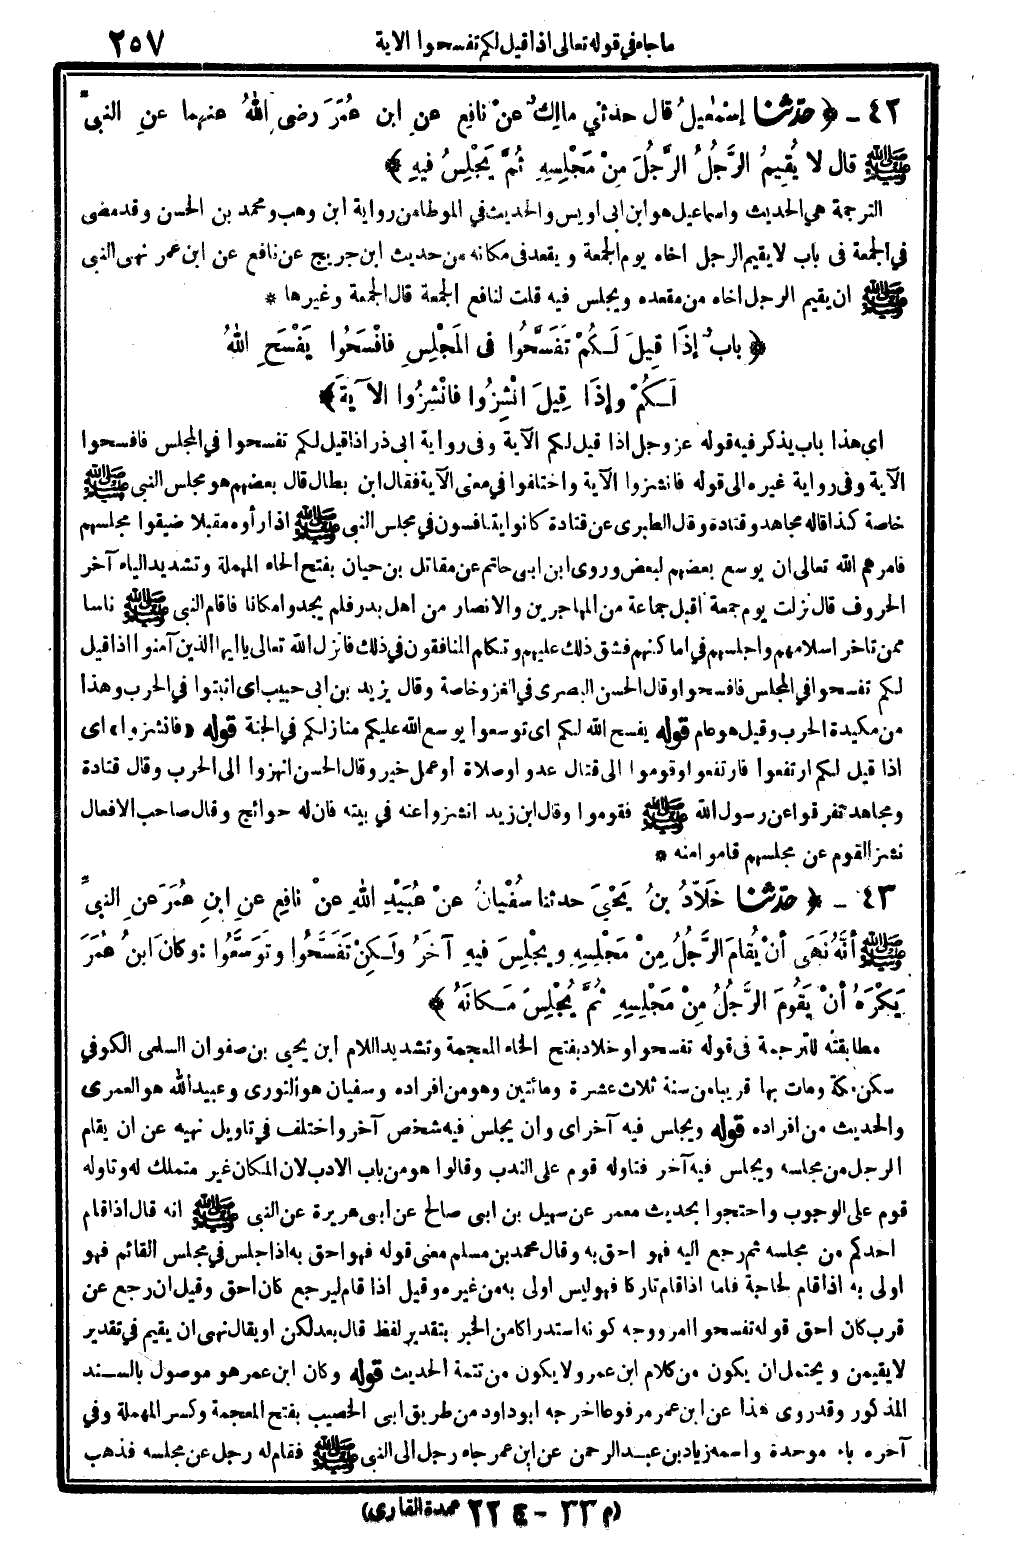 ما جاء في قوله تعالى اذا قيل لكم تفسحوا الاية ٢٥٧
٤٢ - ﴿ حدثنا إسمعيلُ قال حدثني مالكٌ عنْ نافِعٍ عنِ ابنِ عُمَرَ رضى اللهُ عنهما عنِ النبيِّ
ﷺ قال لا يُقِيمُ الرَّجُلُ الرَّجُلَ مِنْ مَجْلِسِهِ ثُمَّ يَجْلِسُ فِيهِ ﴾
الترجمة هي الحديث واسماعيل هو ابن ابى اويس والحديث في الموطا من رواية ابن وهب ومحمد بن الحسن وقد مضى
في الجمعة فى باب لا يقيم الرجل اخاه يوم الجمعة ويقعد فى مكانه من حديث ابن جريج عن نافع عن ابن عمر نهى النبى
ﷺ ان يقيم الرجل اخاه من مقعده ويجلس فيه قلت لنافع الجمعة قال الجمعة وغيرها *
﴿ بابٌ إذَا قِيلَ لَكُمْ تَفَسَّحُوا فى المَجْلِسِ فافْسَحُوا يَفْسَحِ اللهُ
لَكُمْ وإذَا قِيلَ انْشِزُوا فانْشِزُوا الآيةَ ﴾
اي هذا باب يذكر فيه قوله عز وجل اذا قيل لكم الآية وفى رواية ابى ذر اذا قيل لكم تفسحوا في المجلس فافسحوا
الآية وفى رواية غيره الى قوله فانشزوا الآية واختلفوا في معنى الآية فقال ابن بطال قال بعضهم هو مجلس النبى ﷺ
خاصة كذا قاله مجاهد وقتادة وقال الطبرى عن قتادة كانوا يتنافسون في مجلس النبى ﷺ اذا رأوه مقبلا ضيقوا مجلسهم
فامرهم الله تعالى ان يوسع بعضهم لبعض وروى ابن ابى حاتم عن مقاتل بن حيان بفتح الحاء المهملة وتشديد الياء آخر
الحروف قال نزلت يوم جمعة اقبل جماعة من المهاجرين والانصار من اهل بدر فلم يجدوا مكانا فاقام النبى ﷺ ناسا
ممن تاخر اسلامهم واجلسهم في اماكنهم فشق ذلك عليهم وتكلم المنافقون في ذلك فانزل الله تعالى يا ايها الذين آمنوا اذا قيل
لكم تفسحوا في المجلس فافسحوا وقال الحسن البصرى في الغزو خاصة وقال يزيد بن ابى حبيب اى اثبتوا في الحرب وهذا
من مكيدة الحرب وقيل هو عام قوله يفسح الله لكم اى توسعوا يوسع الله عليكم منازلكم في الجنة قوله «فانشزوا» اى
اذا قيل لكم ارتفعوا فارتفعوا وقوموا الى قتال عدو او صلاة أو عمل خير وقال الحسن انهزوا الى الحرب وقال قتادة
ومجاهد تفرقوا عن رسول الله ﷺ فقوموا وقال ابن زيد انشزوا عنه في بيته فان له حوائج وقال صاحب الافعال
نشز القوم عن مجلسهم قاموا منه *
٤٣ - ﴿ حدثنا خَلاَّدُ بنُ يَحْيَى حدثنا سُفْيانُ عنْ عُبَيْدِ اللهِ عنْ نافِعٍ عنِ ابنِ عُمَرَ عنِ النبيِّ
ﷺ أنَّهُ نَهَى أنْ يُقامَ الرَّجُلُ مِنْ مَجْلِسِهِ ويَجْلِسَ فيهِ آخَرُ ولَكِنْ تَفَسَّحُوا وتَوَسَّعُوا : وكانَ ابنُ عُمَرَ
يَكْرَهُ أنْ يَقُومَ الرَّجُلُ مِنْ مَجْلِسِهِ ثُمَّ يُجْلِسَ مَكانَهُ ﴾
مطابقته للترجمة فى قوله تفسحوا وخلاد بفتح الخاء المعجمة وتشديد اللام ابن يحيى بن صفوان السلمى الكوفي
سكن مكة ومات بها قريبا من سنة ثلاث عشرة ومائتين وهو من افراده وسفيان هو الثورى وعبيد الله هو العمرى
والحديث من افراده قوله ويجلس فيه آخر اى وان يجلس فيه شخص آخر واختلف في تاويل نهيه عن ان يقام
الرجل من مجلسه ويجلس فيه آخر فتاوله قوم على الندب وقالوا هو من باب الادب لان المكان غير متملك له وتاوله
قوم على الوجوب واحتجوا بحديث معمر عن سهيل بن ابى صالح عن ابى هريرة عن النبى ﷺ انه قال اذا قام
احدكم من مجلسه ثم رجع اليه فهو احق به وقال محمد بن مسلم معنى قوله فهو احق به اذا جلس في مجلس القائم فهو
اولى به اذا قام لحاجة فاما اذا قام تاركا فهو ليس اولى به من غيره وقيل اذا قام ليرجع كان احق وقيل ان رجع عن
قرب كان احق قوله تفسحوا امر ووجه كونه استدراكا من الخبر بتقدير لفظ قال بعد لكن او يقال نهى ان يقيم في تقدير
لا يقيمن ويحتمل ان يكون من كلام ابن عمر ولا يكون من تتمة الحديث قوله وكان ابن عمر هو موصول بالسند
المذكور وقد روى هذا عن ابن عمر مرفوعا اخرجه ابو داود من طريق ابى الخصيب بفتح المعجمة وكسر المهملة وفي
آخره باء موحدة واسمه زياد بن عبد الرحمن عن ابن عمر جاء رجل الى النبى ﷺ فقام له رجل عن مجلسه فذهب
(م ٣٣ - ج ٢٢ عمدة القارى)